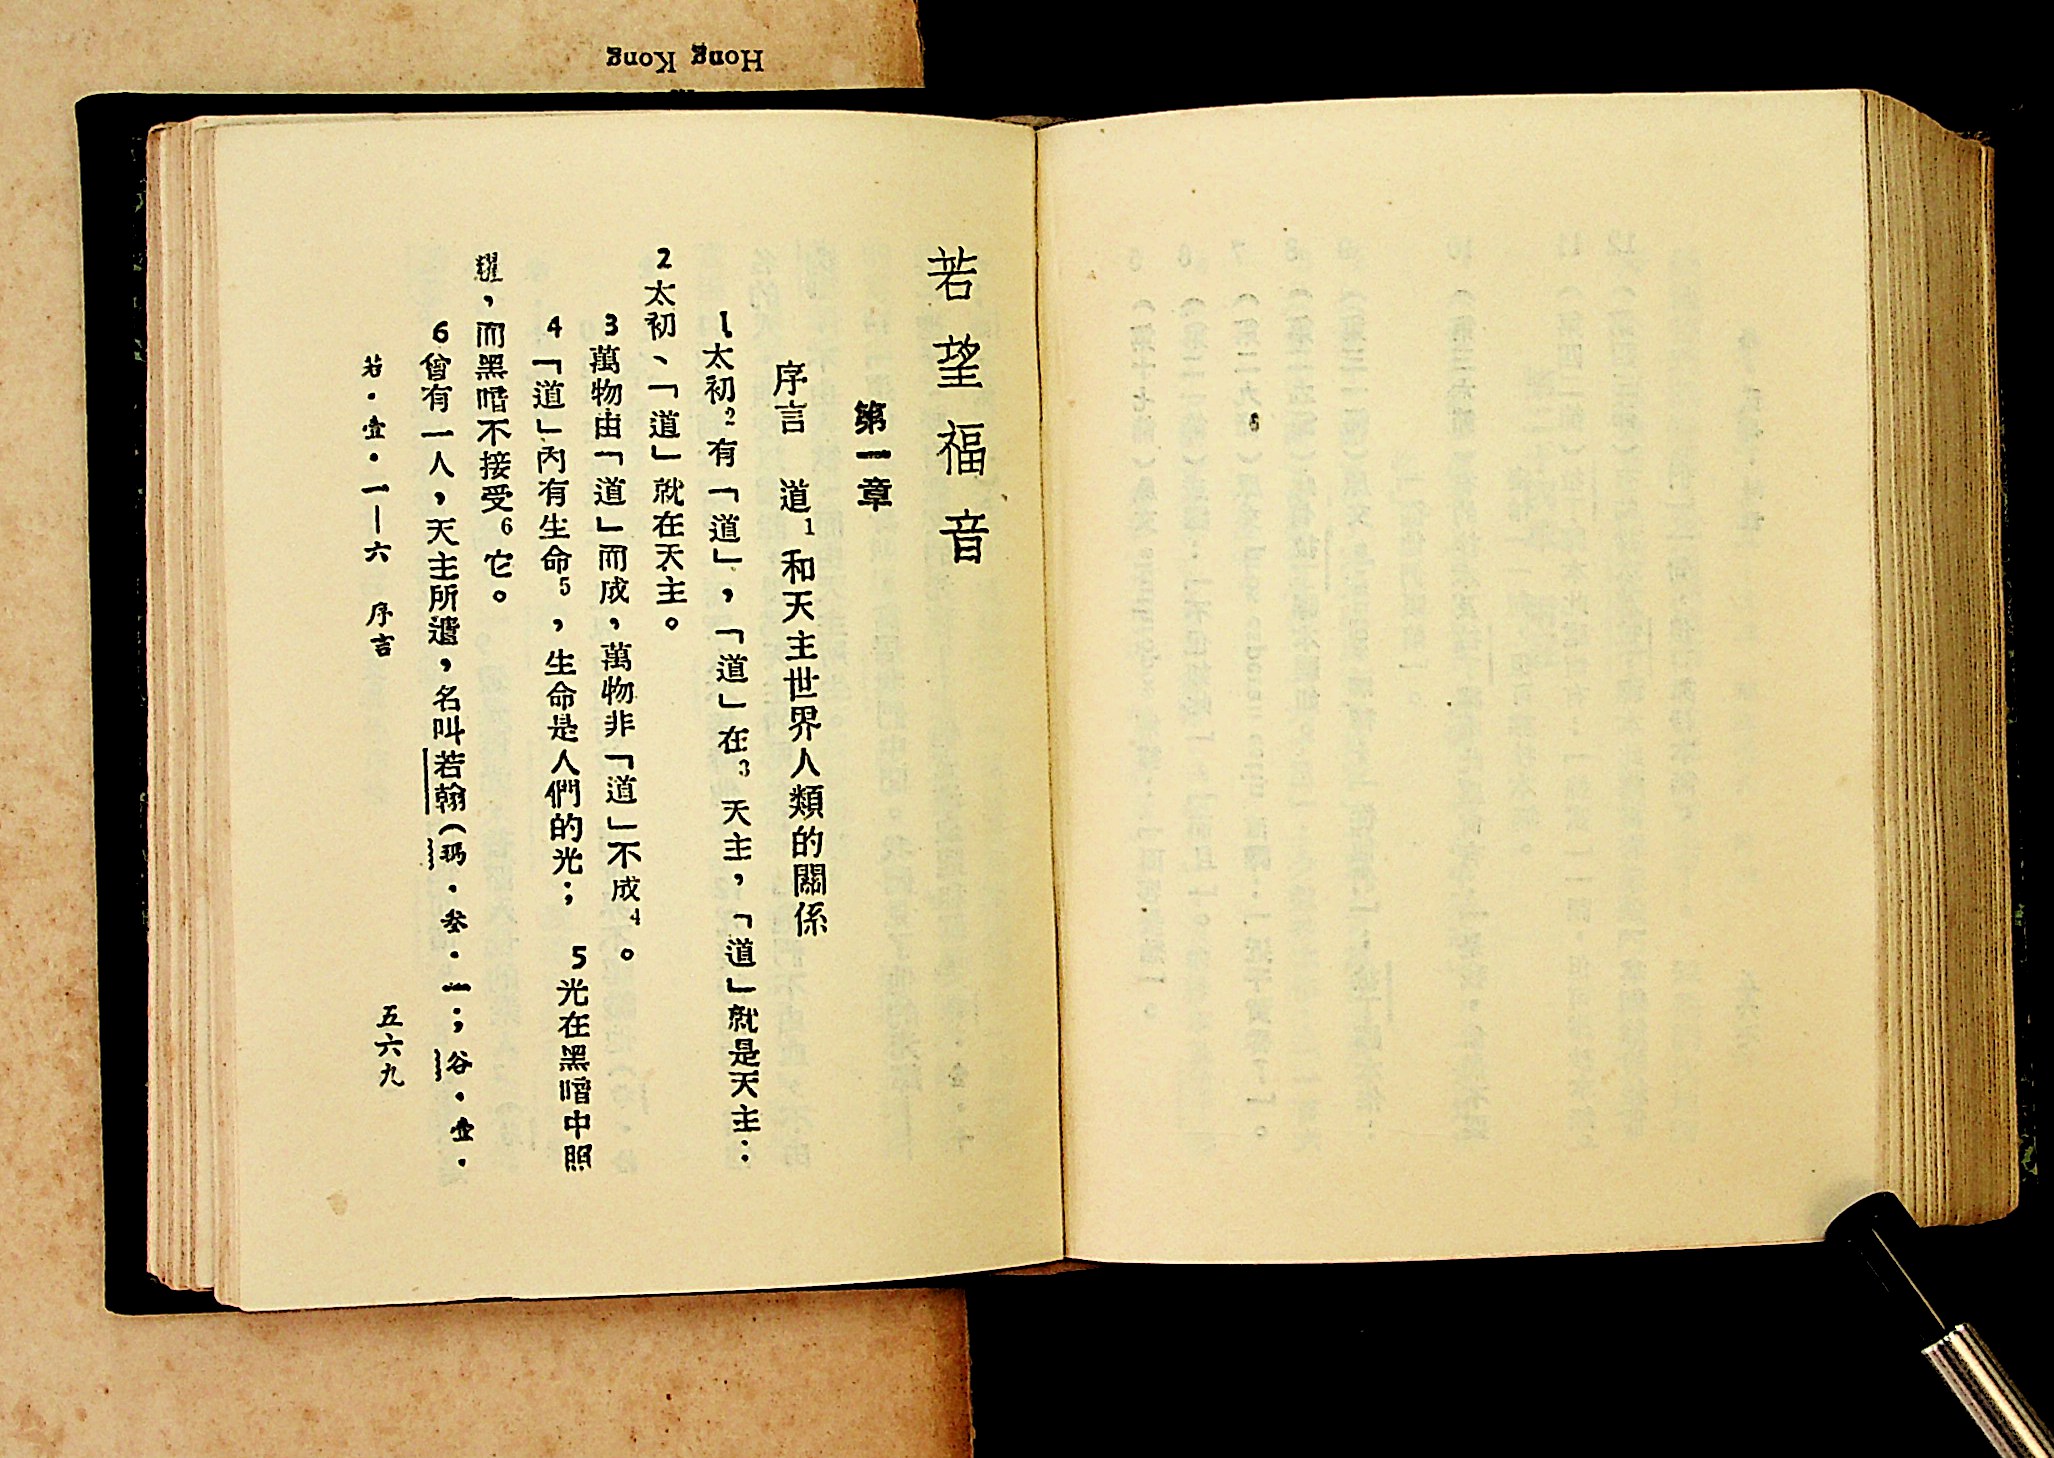 Hong Kong
若望福音
第一章
序言　道1和天主世界人類的關係
1太初2有「道」，「道」在3天主，「道」就是天主：
2太初、「道」就在天主。
3萬物由「道」而成，萬物非「道」不成4。
4「道」內有生命5，生命是人們的光；　5光在黑暗中照
耀，而黑暗不接受6它。
6曾有一人，天主所遣，名叫若翰（瑪．叁．一；谷．壹．
若．壹．一—六　序言
五六九